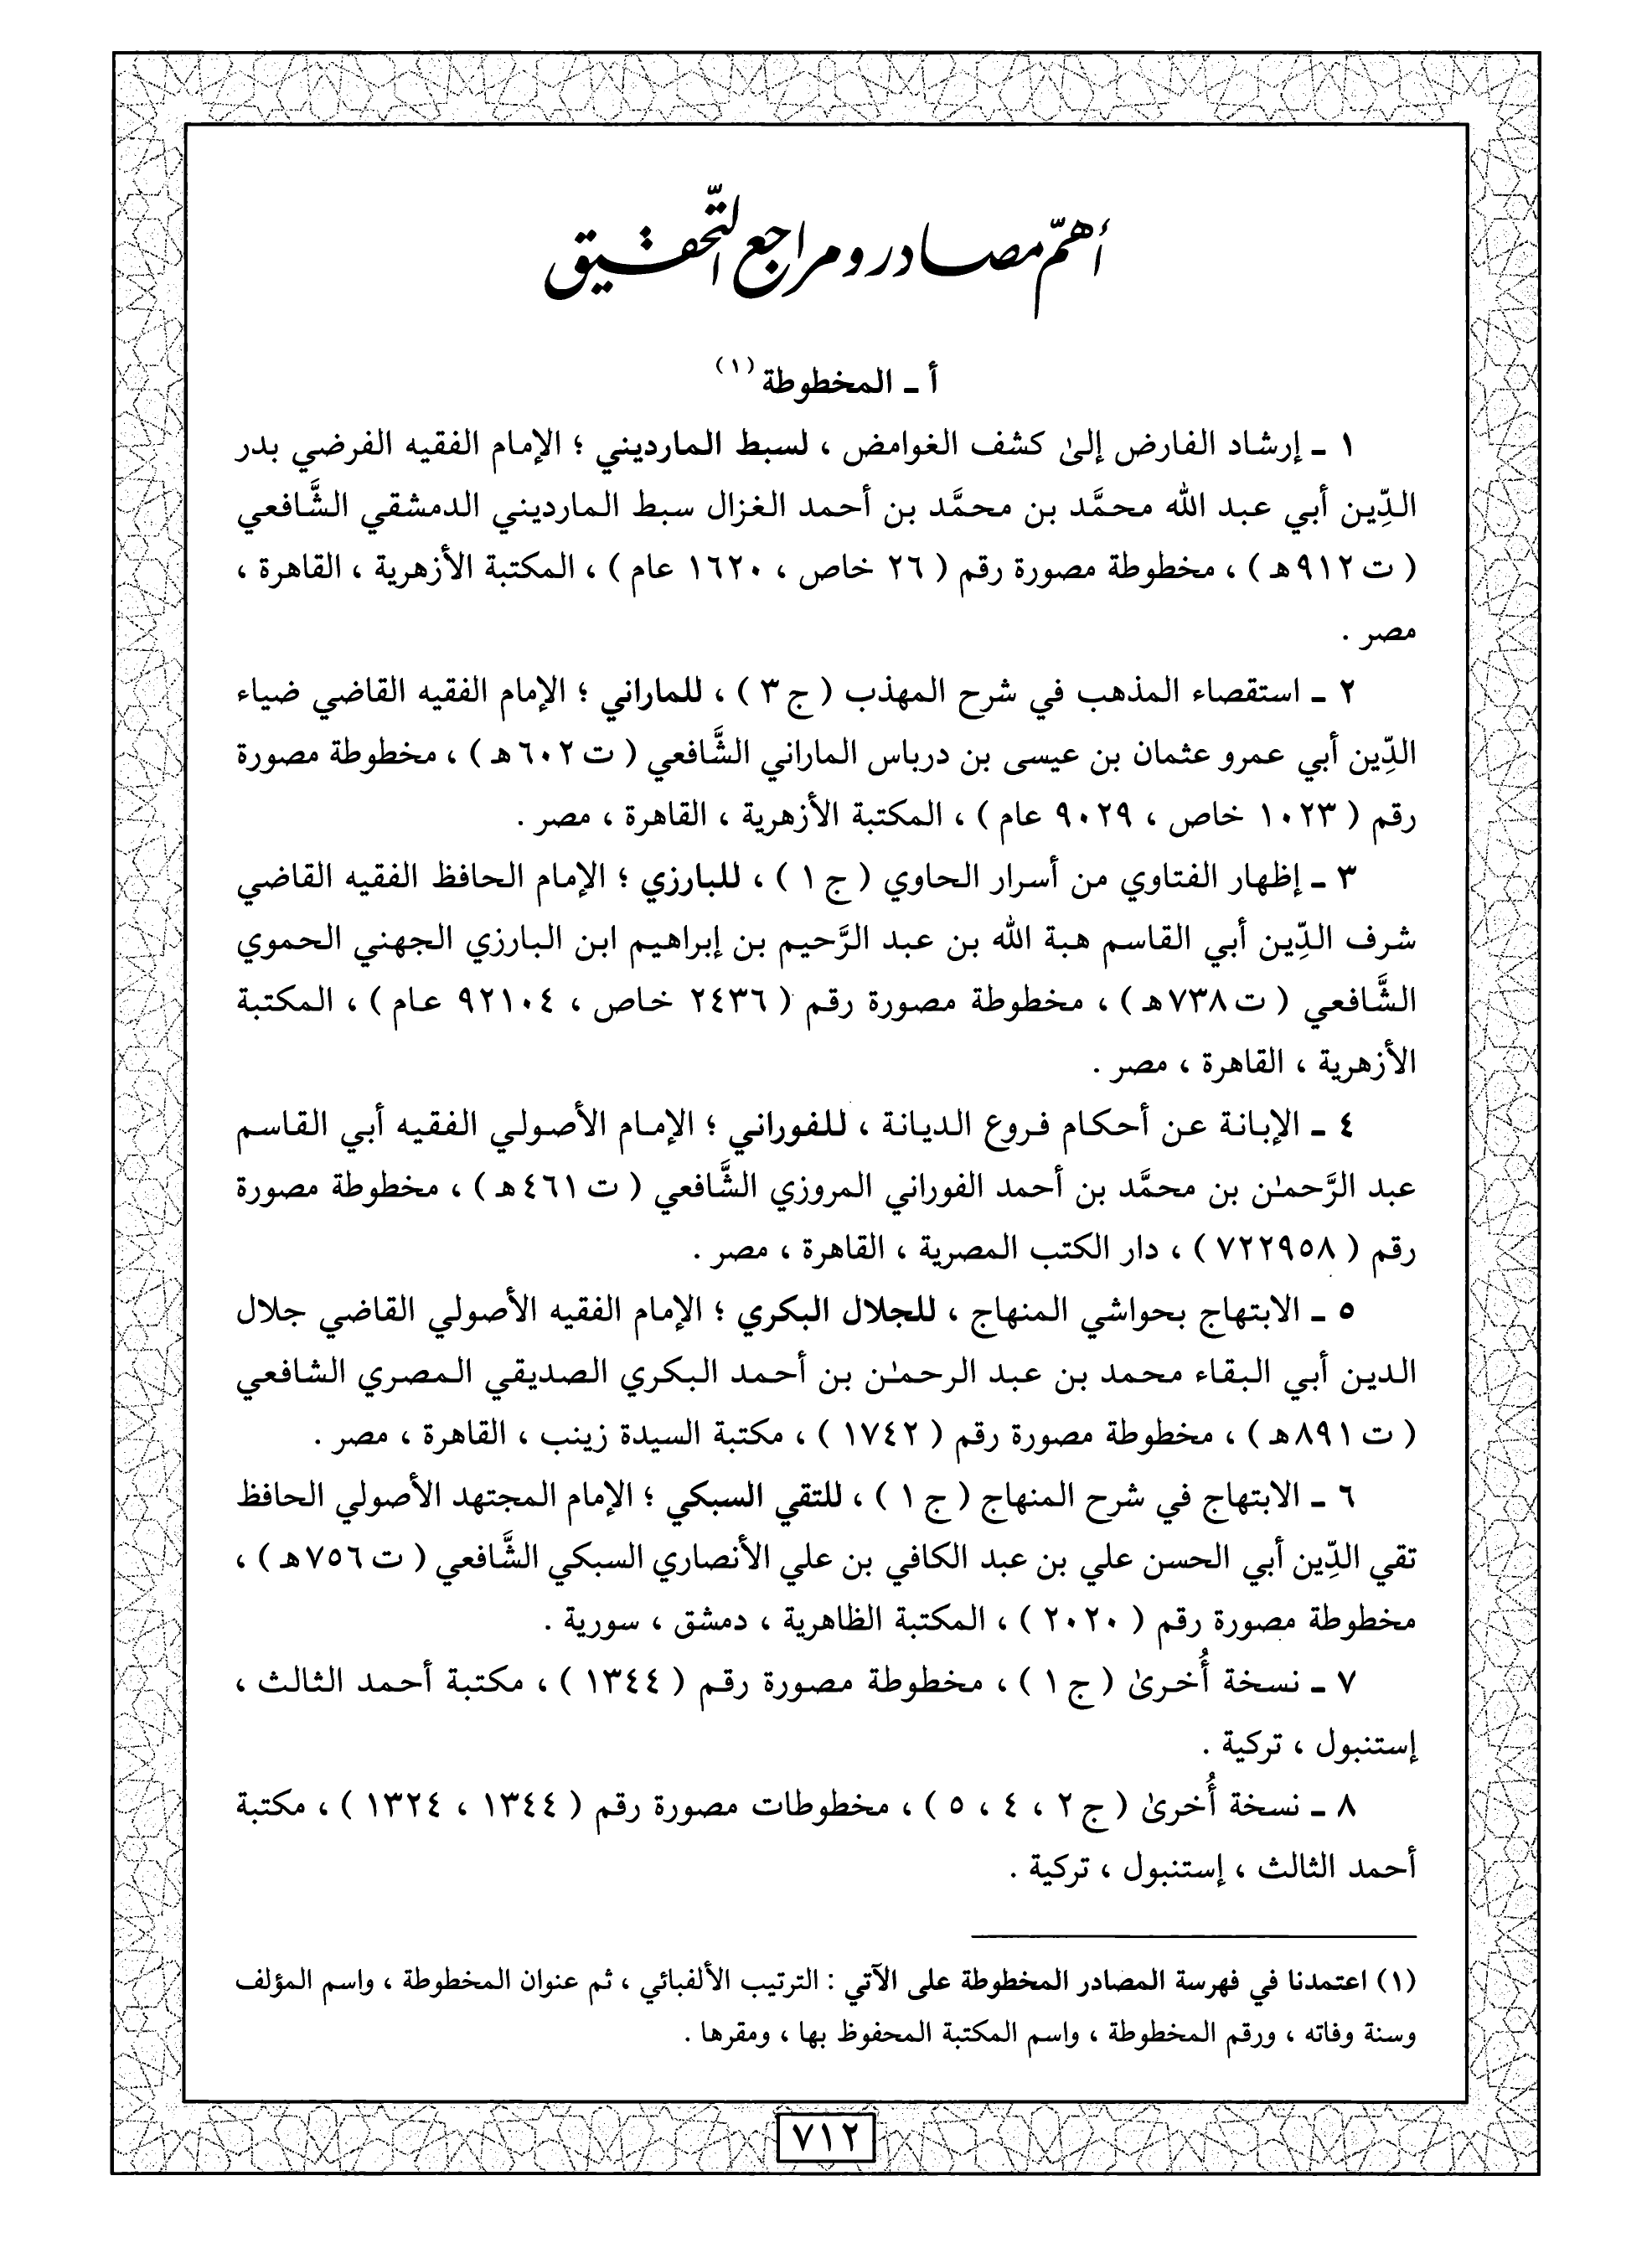 أهمّ مصادر ومراجع التّحقيق
أ ـ المخطوطة (١)
١ ـ إرشاد الفارض إلىٰ كشف الغوامض ، لسبط المارديني ؛ الإمام الفقيه الفرضي بدر
الدِّين أبي عبد الله محمَّد بن محمَّد بن أحمد الغزال سبط المارديني الدمشقي الشَّافعي
( ت ٩١٢هـ ) ، مخطوطة مصورة رقم ( ٢٦ خاص ، ١٦٢٠ عام ) ، المكتبة الأزهرية ، القاهرة ،
مصر .
٢ ـ استقصاء المذهب في شرح المهذب ( ج ٣ ) ، للماراني ؛ الإمام الفقيه القاضي ضياء
الدِّين أبي عمرو عثمان بن عيسى بن درباس الماراني الشَّافعي ( ت ٦٠٢هـ ) ، مخطوطة مصورة
رقم ( ١٠٢٣ خاص ، ٩٠٢٩ عام ) ، المكتبة الأزهرية ، القاهرة ، مصر .
٣ ـ إظهار الفتاوي من أسرار الحاوي ( ج ١ ) ، للبارزي ؛ الإمام الحافظ الفقيه القاضي
شرف الدِّين أبي القاسم هبة الله بن عبد الرَّحيم بن إبراهيم ابن البارزي الجهني الحموي
الشَّافعي ( ت ٧٣٨هـ ) ، مخطوطة مصورة رقم ( ٢٤٣٦ خاص ، ٩٢١٠٤ عام ) ، المكتبة
الأزهرية ، القاهرة ، مصر .
٤ ـ الإبانة عن أحكام فروع الديانة ، للفوراني ؛ الإمام الأصولي الفقيه أبي القاسم
عبد الرَّحمـٰن بن محمَّد بن أحمد الفوراني المروزي الشَّافعي ( ت ٤٦١هـ ) ، مخطوطة مصورة
رقم ( ٧٢٢٩٥٨ ) ، دار الكتب المصرية ، القاهرة ، مصر .
٥ ـ الابتهاج بحواشي المنهاج ، للجلال البكري ؛ الإمام الفقيه الأصولي القاضي جلال
الدين أبي البقاء محمد بن عبد الرحمـٰن بن أحمد البكري الصديقي المصري الشافعي
( ت ٨٩١هـ ) ، مخطوطة مصورة رقم ( ١٧٤٢ ) ، مكتبة السيدة زينب ، القاهرة ، مصر .
٦ ـ الابتهاج في شرح المنهاج ( ج ١ ) ، للتقي السبكي ؛ الإمام المجتهد الأصولي الحافظ
تقي الدِّين أبي الحسن علي بن عبد الكافي بن علي الأنصاري السبكي الشَّافعي ( ت ٧٥٦هـ ) ،
مخطوطة مصورة رقم ( ٢٠٢٠ ) ، المكتبة الظاهرية ، دمشق ، سورية .
٧ ـ نسخة أُخرىٰ ( ج ١ ) ، مخطوطة مصورة رقم ( ١٣٤٤ ) ، مكتبة أحمد الثالث ،
إستنبول ، تركية .
٨ ـ نسخة أُخرىٰ ( ج ٢ ، ٤ ، ٥ ) ، مخطوطات مصورة رقم ( ١٣٤٤ ، ١٣٢٤ ) ، مكتبة
أحمد الثالث ، إستنبول ، تركية .
(١) اعتمدنا في فهرسة المصادر المخطوطة على الآتي : الترتيب الألفبائي ، ثم عنوان المخطوطة ، واسم المؤلف
وسنة وفاته ، ورقم المخطوطة ، واسم المكتبة المحفوظ بها ، ومقرها .
٧١٢